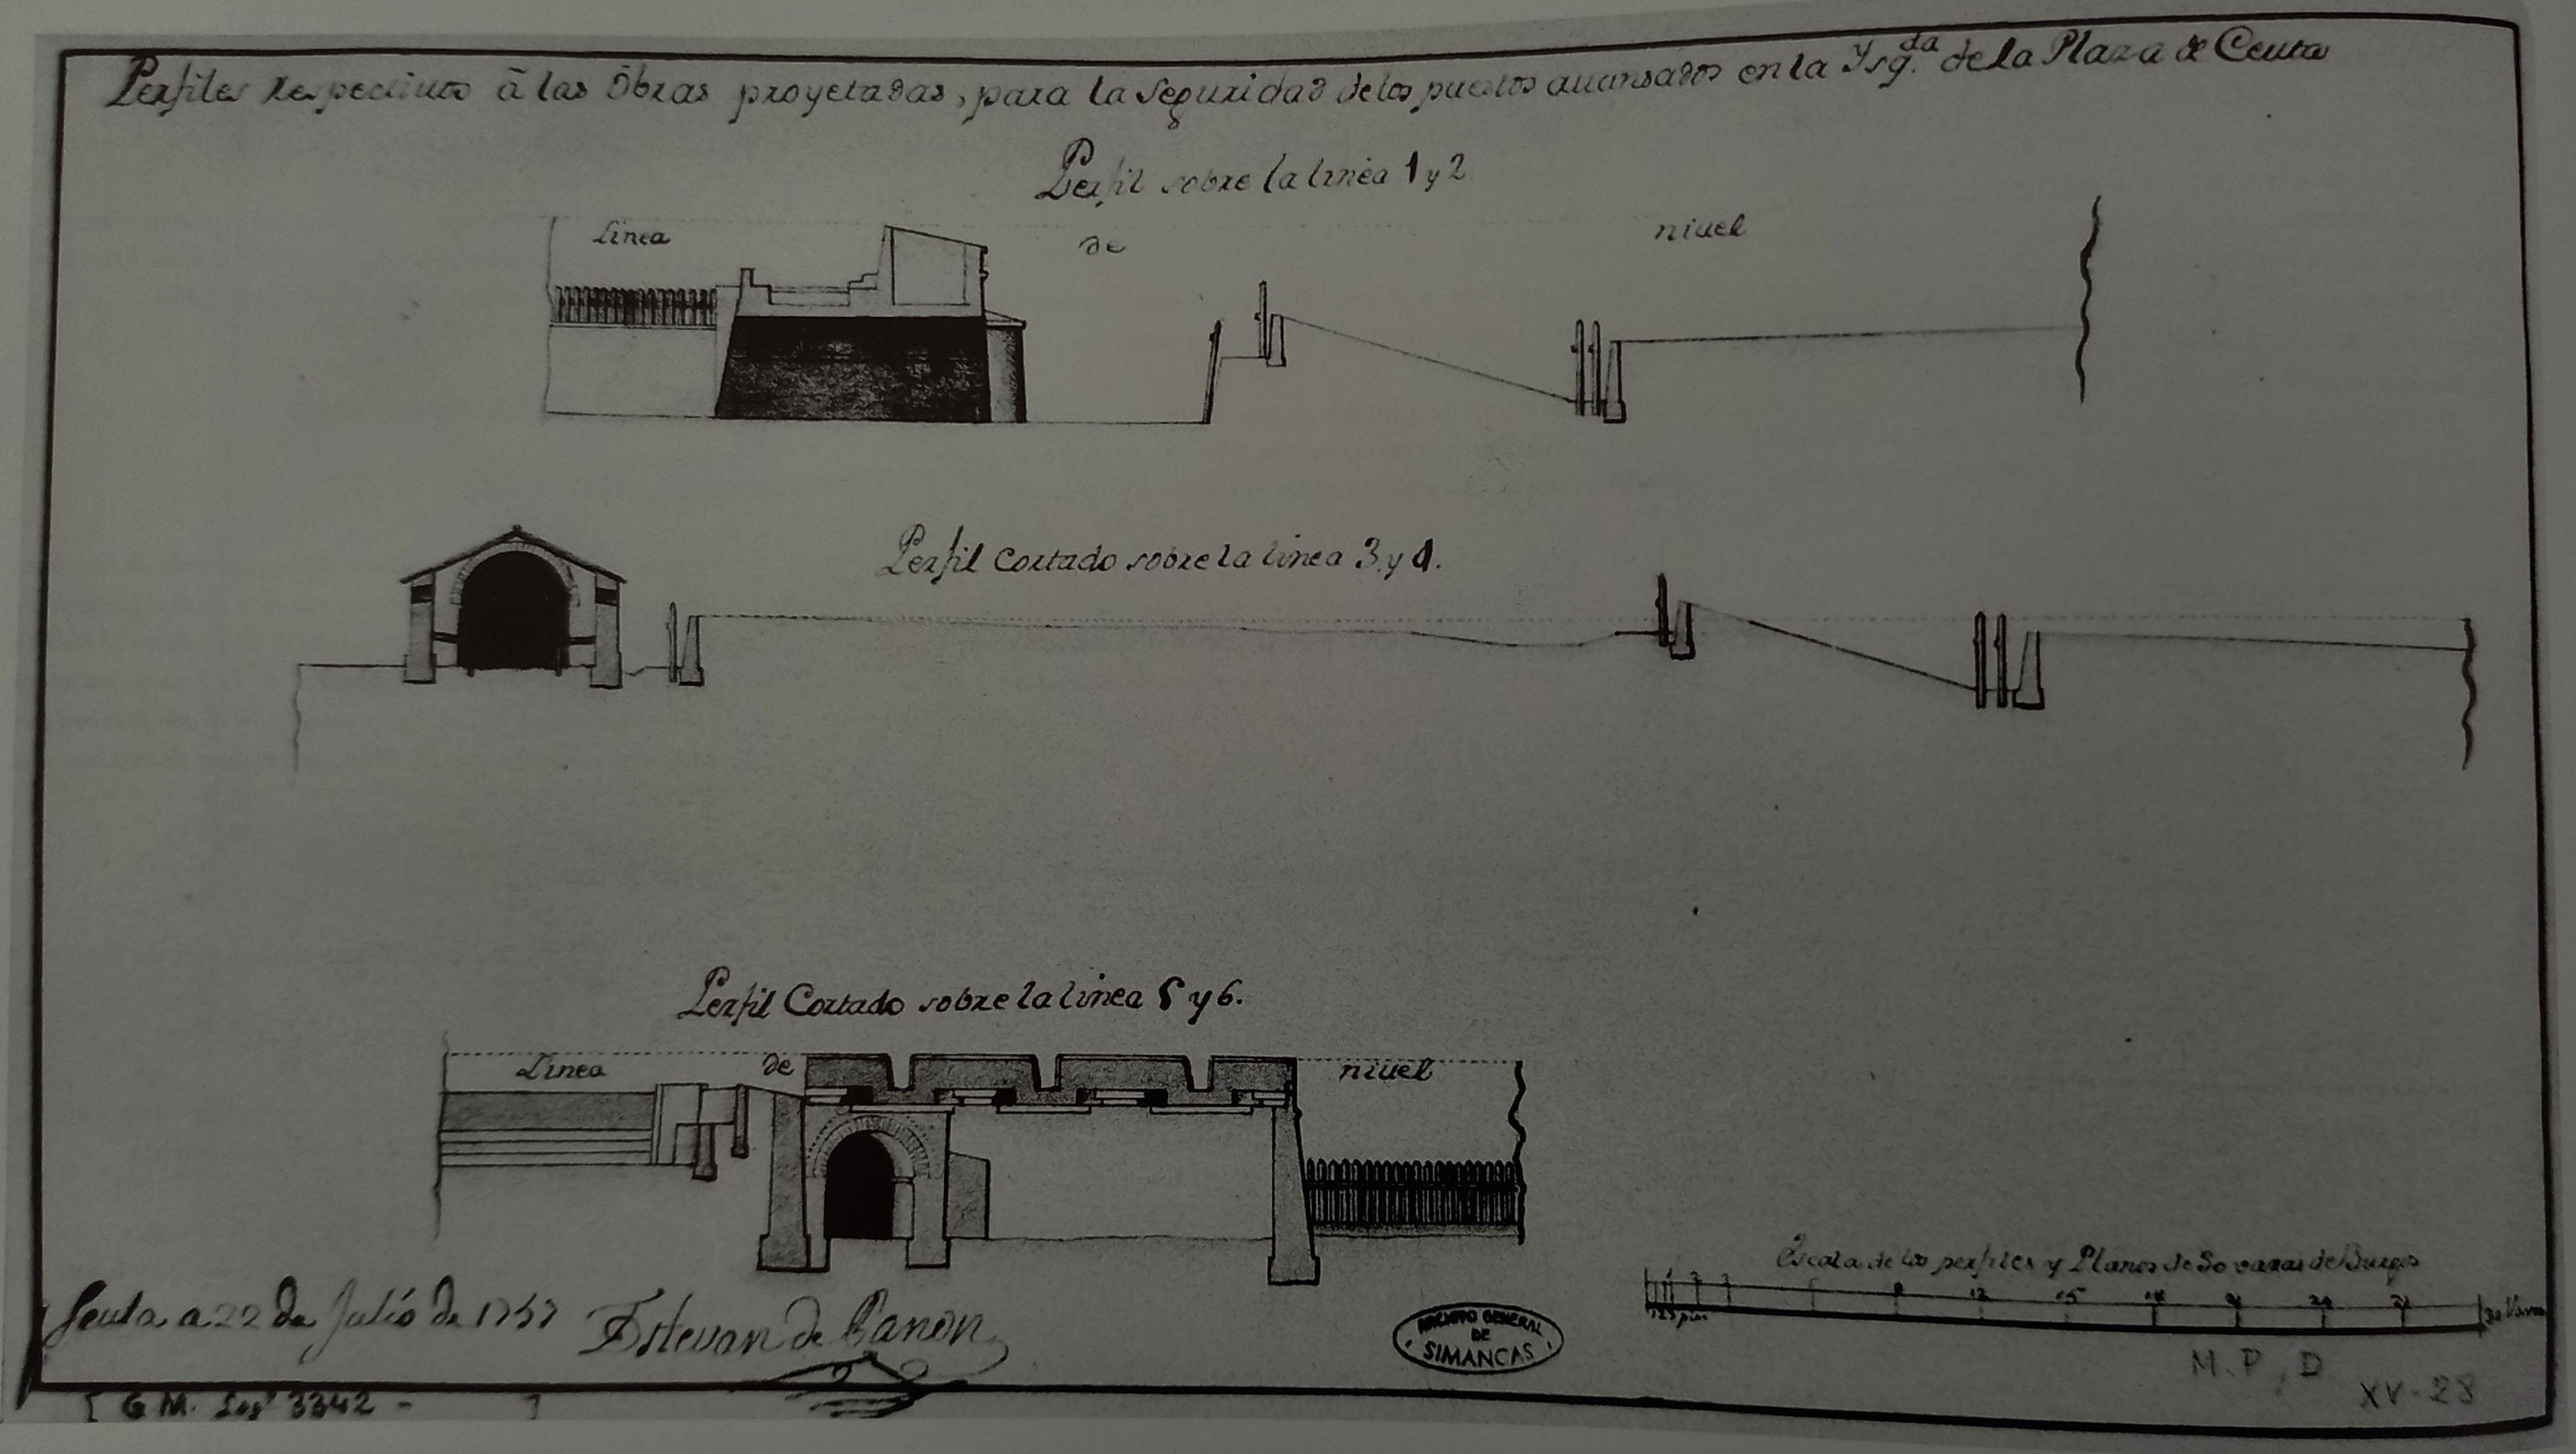 Perfiles respectiuos à las Obras proyetadas, para la Seguridad de los puestos auansados en la Ysq.da de la Plaza de Ceuta
Perfil sobre la linea 1 y 2
Linea de niuel
Perfil Cortado sobre la linea 3 y 4.
Perfil Cortado sobre la linea 5 y 6.
Linea de niuel
Escala de los perfiles y Planos de 30 varas de Burgos
1 2 3 6 9 12 15 18 21 24 27 30 Varas
1 2 3 pies
Seuta a 22 de Julio de 1757 Estevan de Panon
ARCHIVO GENERAL
DE
SIMANCAS
M.P, D
XV-28
[ G M. Legº 3342 - ]